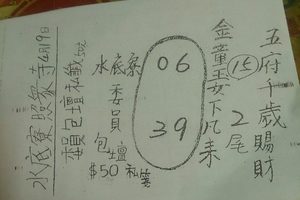 五府千歲賜財
⑮ 2尾
金童玉女下凡来
06
39
水底寮
委員
包壇
$50 私箋
委員包壇私籤
水底寮照家寺4月19日